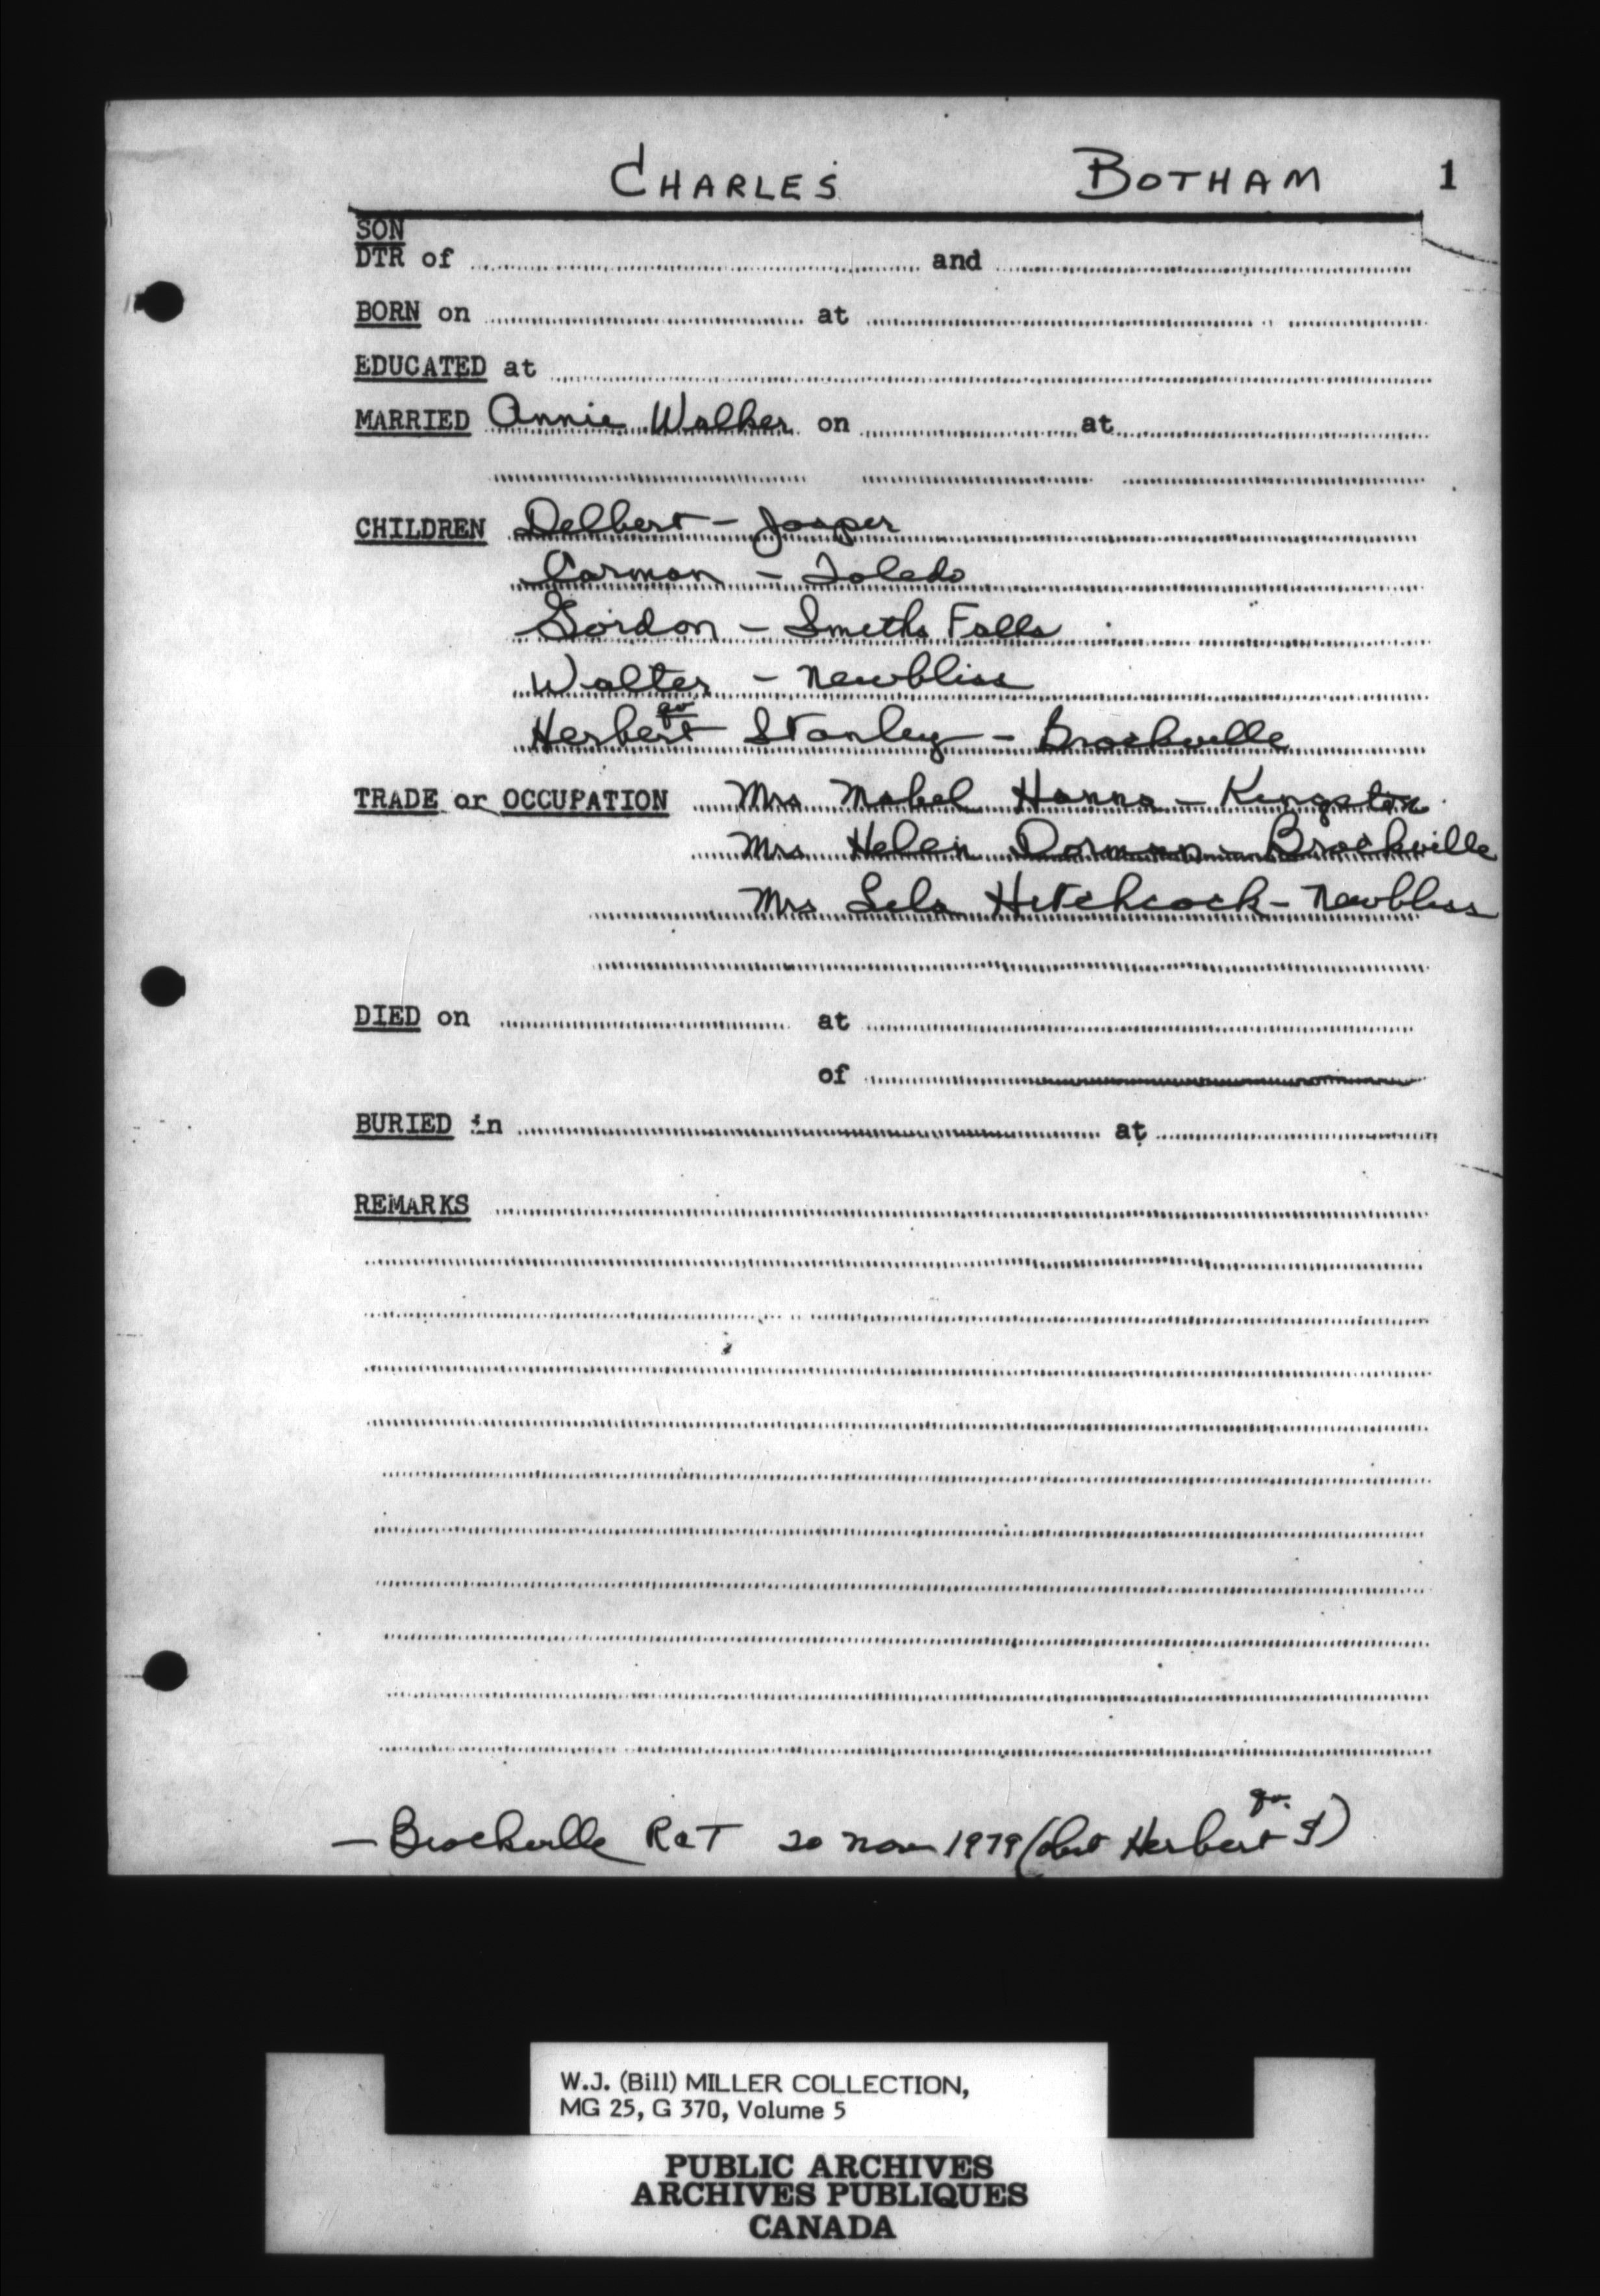 CHARLES BOTHAM 1
SON
DTR of and
BORN on at
EDUCATED at
MARRIED Annie Walker on at
CHILDREN Delbert - Jasper
Carman - Toledo
Gordon - Smiths Falls
Walter - Newbliss
qv
Herbert Stanley - Brockville
TRADE or OCCUPATION Mrs Mabel Hanna - Kingston
Mrs Helen Dorman - Brockville
Mrs Lela Hitchcock - Newbliss
DIED on at
of
BURIED in at
REMARKS
qv.
- Brockville R&T 20 Nov 1979 (obit Herbert S)
W.J. (Bill) MILLER COLLECTION,
MG 25, G 370, Volume 5
PUBLIC ARCHIVES
ARCHIVES PUBLIQUES
CANADA